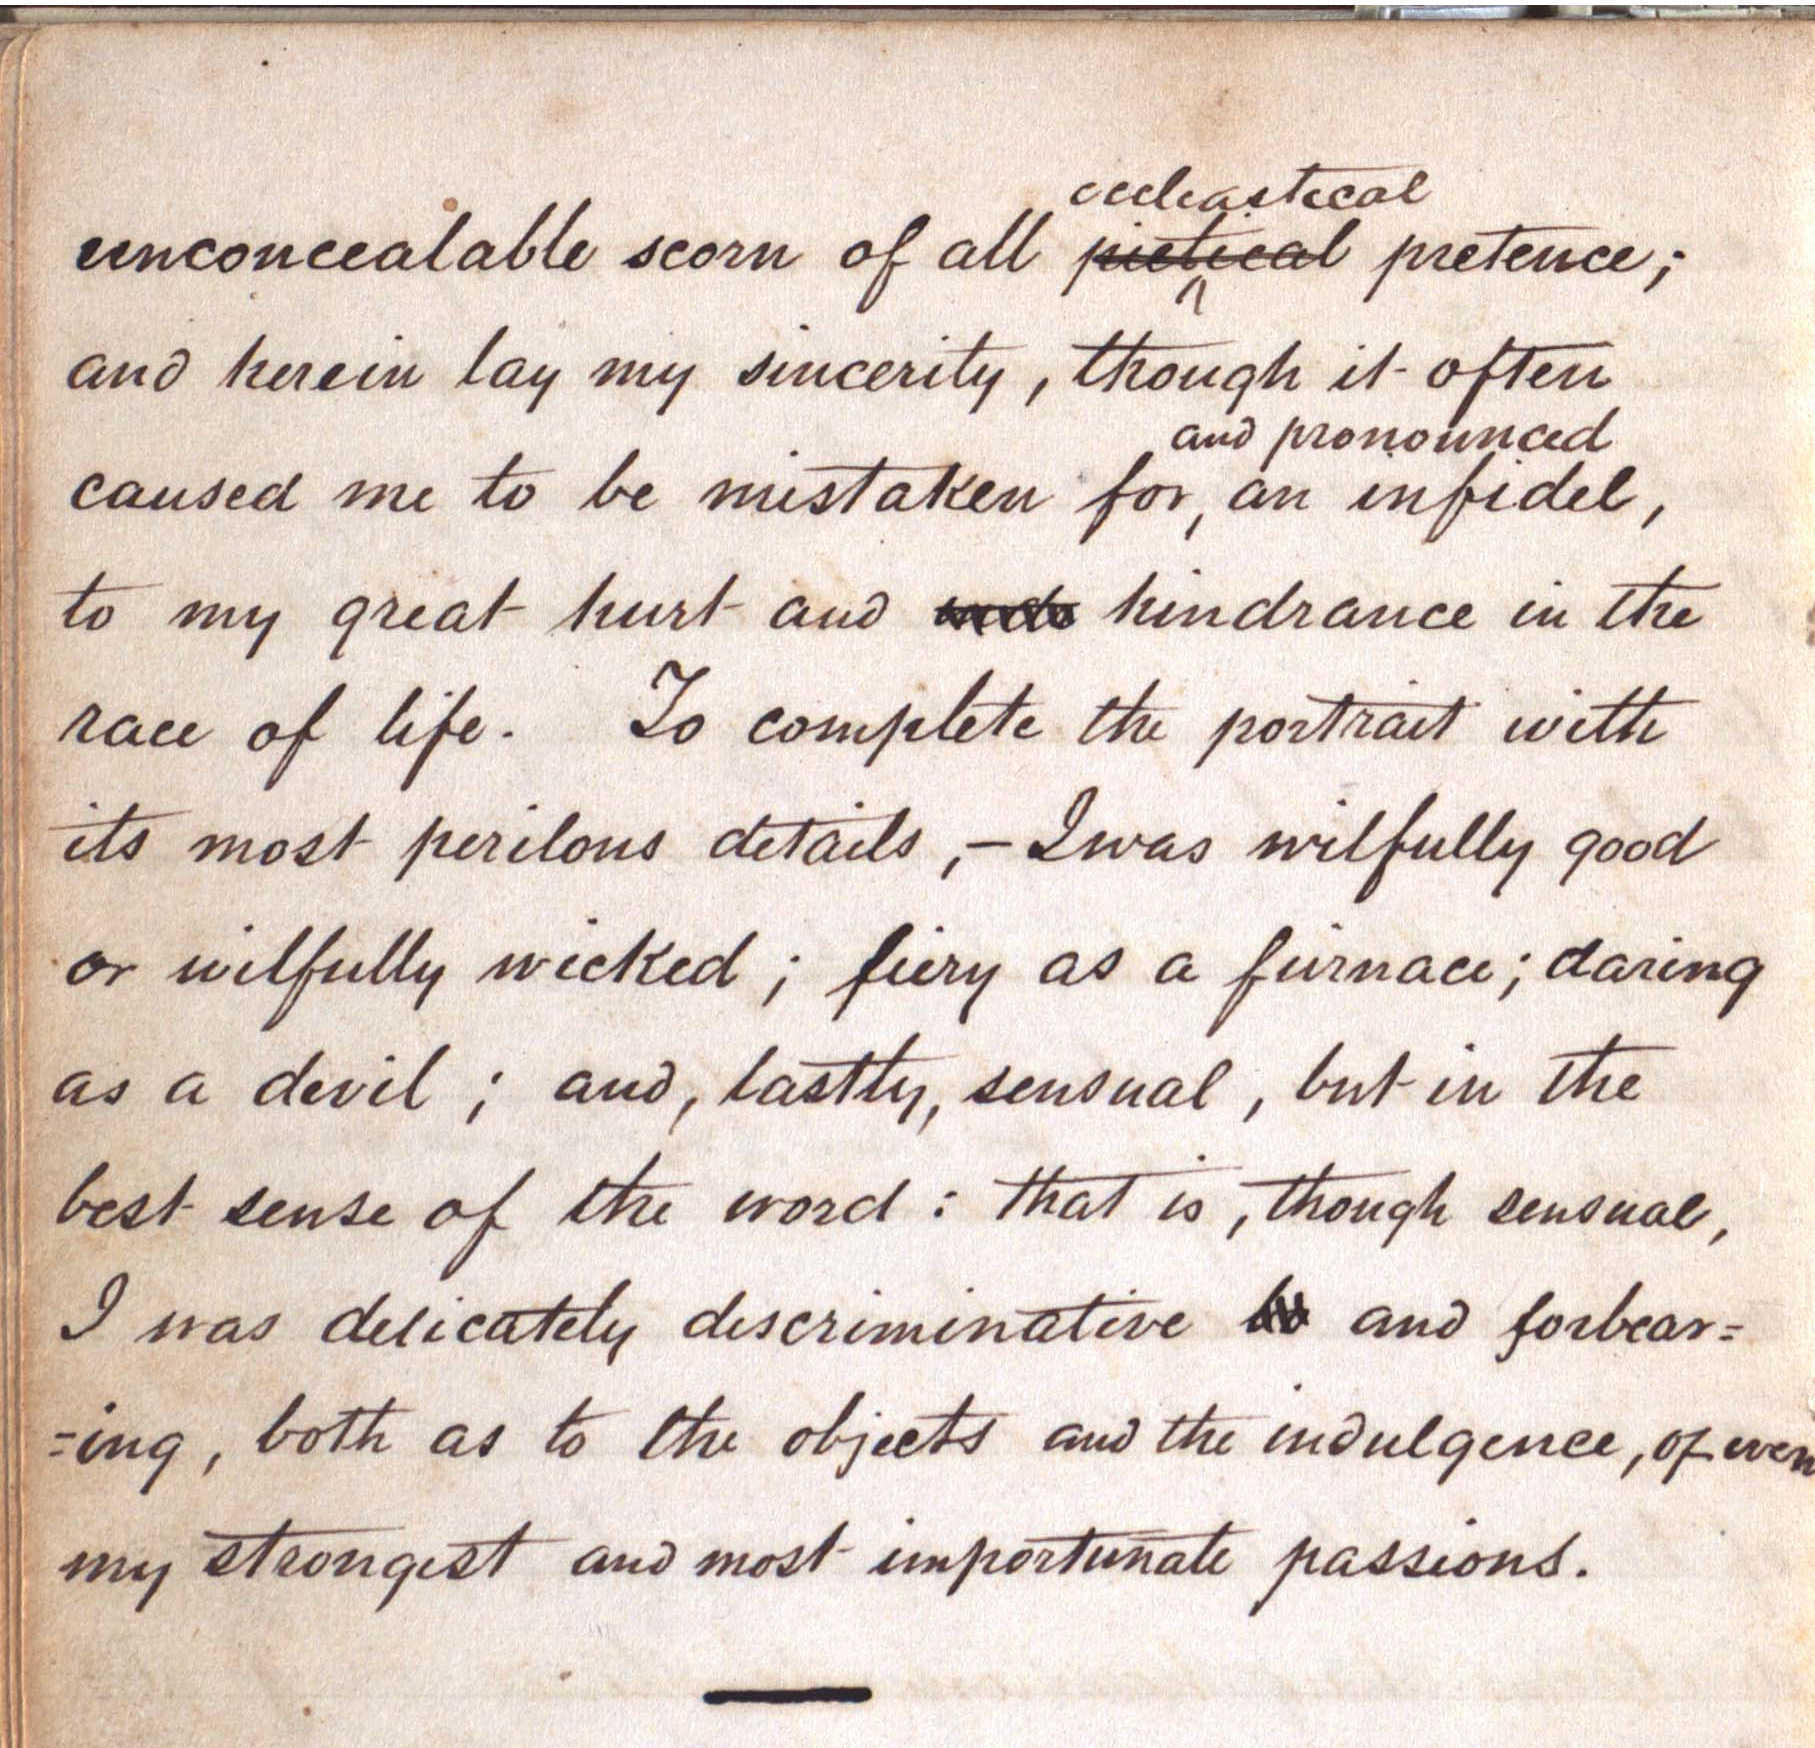 ecclesiastical
unconcealable scorn of all pietical pretence;
and herein lay my sincerity, though it often
and pronounced
caused me to be mistaken for, an infidel,
to my great hurt and hindrance in the
race of life. To complete the portrait with
its most perilous details,— I was wilfully good
or wilfully wicked; fiery as a furnace; daring
as a devil; and, lastly, sensual, but in the
best sense of the word: that is, though sensual,
I was delicately discriminative and forbear=
=ing, both as to the objects and the indulgence, of even
my strongest and most importunate passions.